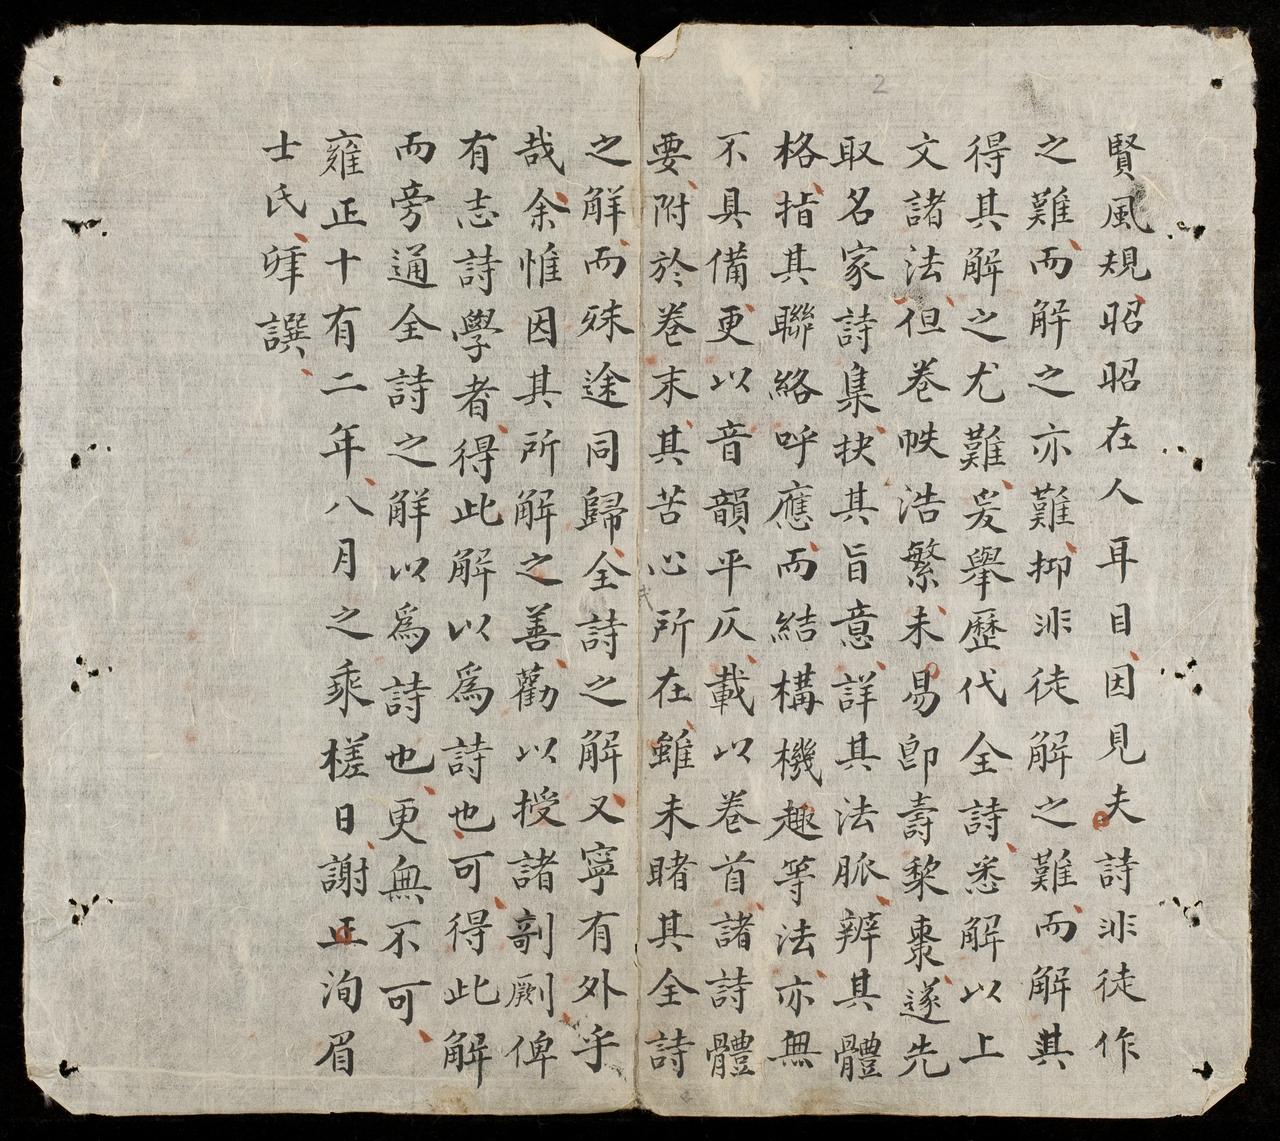 2
賢風規昭昭在人耳目因見夫詩非徒作
之難而解之亦難抑非徒解之難而解其
得其解之尤難爰舉歷代全詩悉解以上
文諸法但卷帙浩繁未易卽壽棃棗遂先
取名家詩集抉其旨意詳其法脈辨其體
格指其聯絡呼應而結構機趣等法亦無
不具備更以音韻平仄載以卷首諸詩體
要附於卷末其苦心所在雖未睹其全詩
之解而殊途同歸全詩之解又寧有外乎
哉余惟因其所解之善勸以授諸剞劂俾
有志詩學者得此解以爲詩也可得此解
而旁通全詩之解以爲詩也更無不可
雍正十有二年八月之乘槎日謝正洵眉
士氏譔